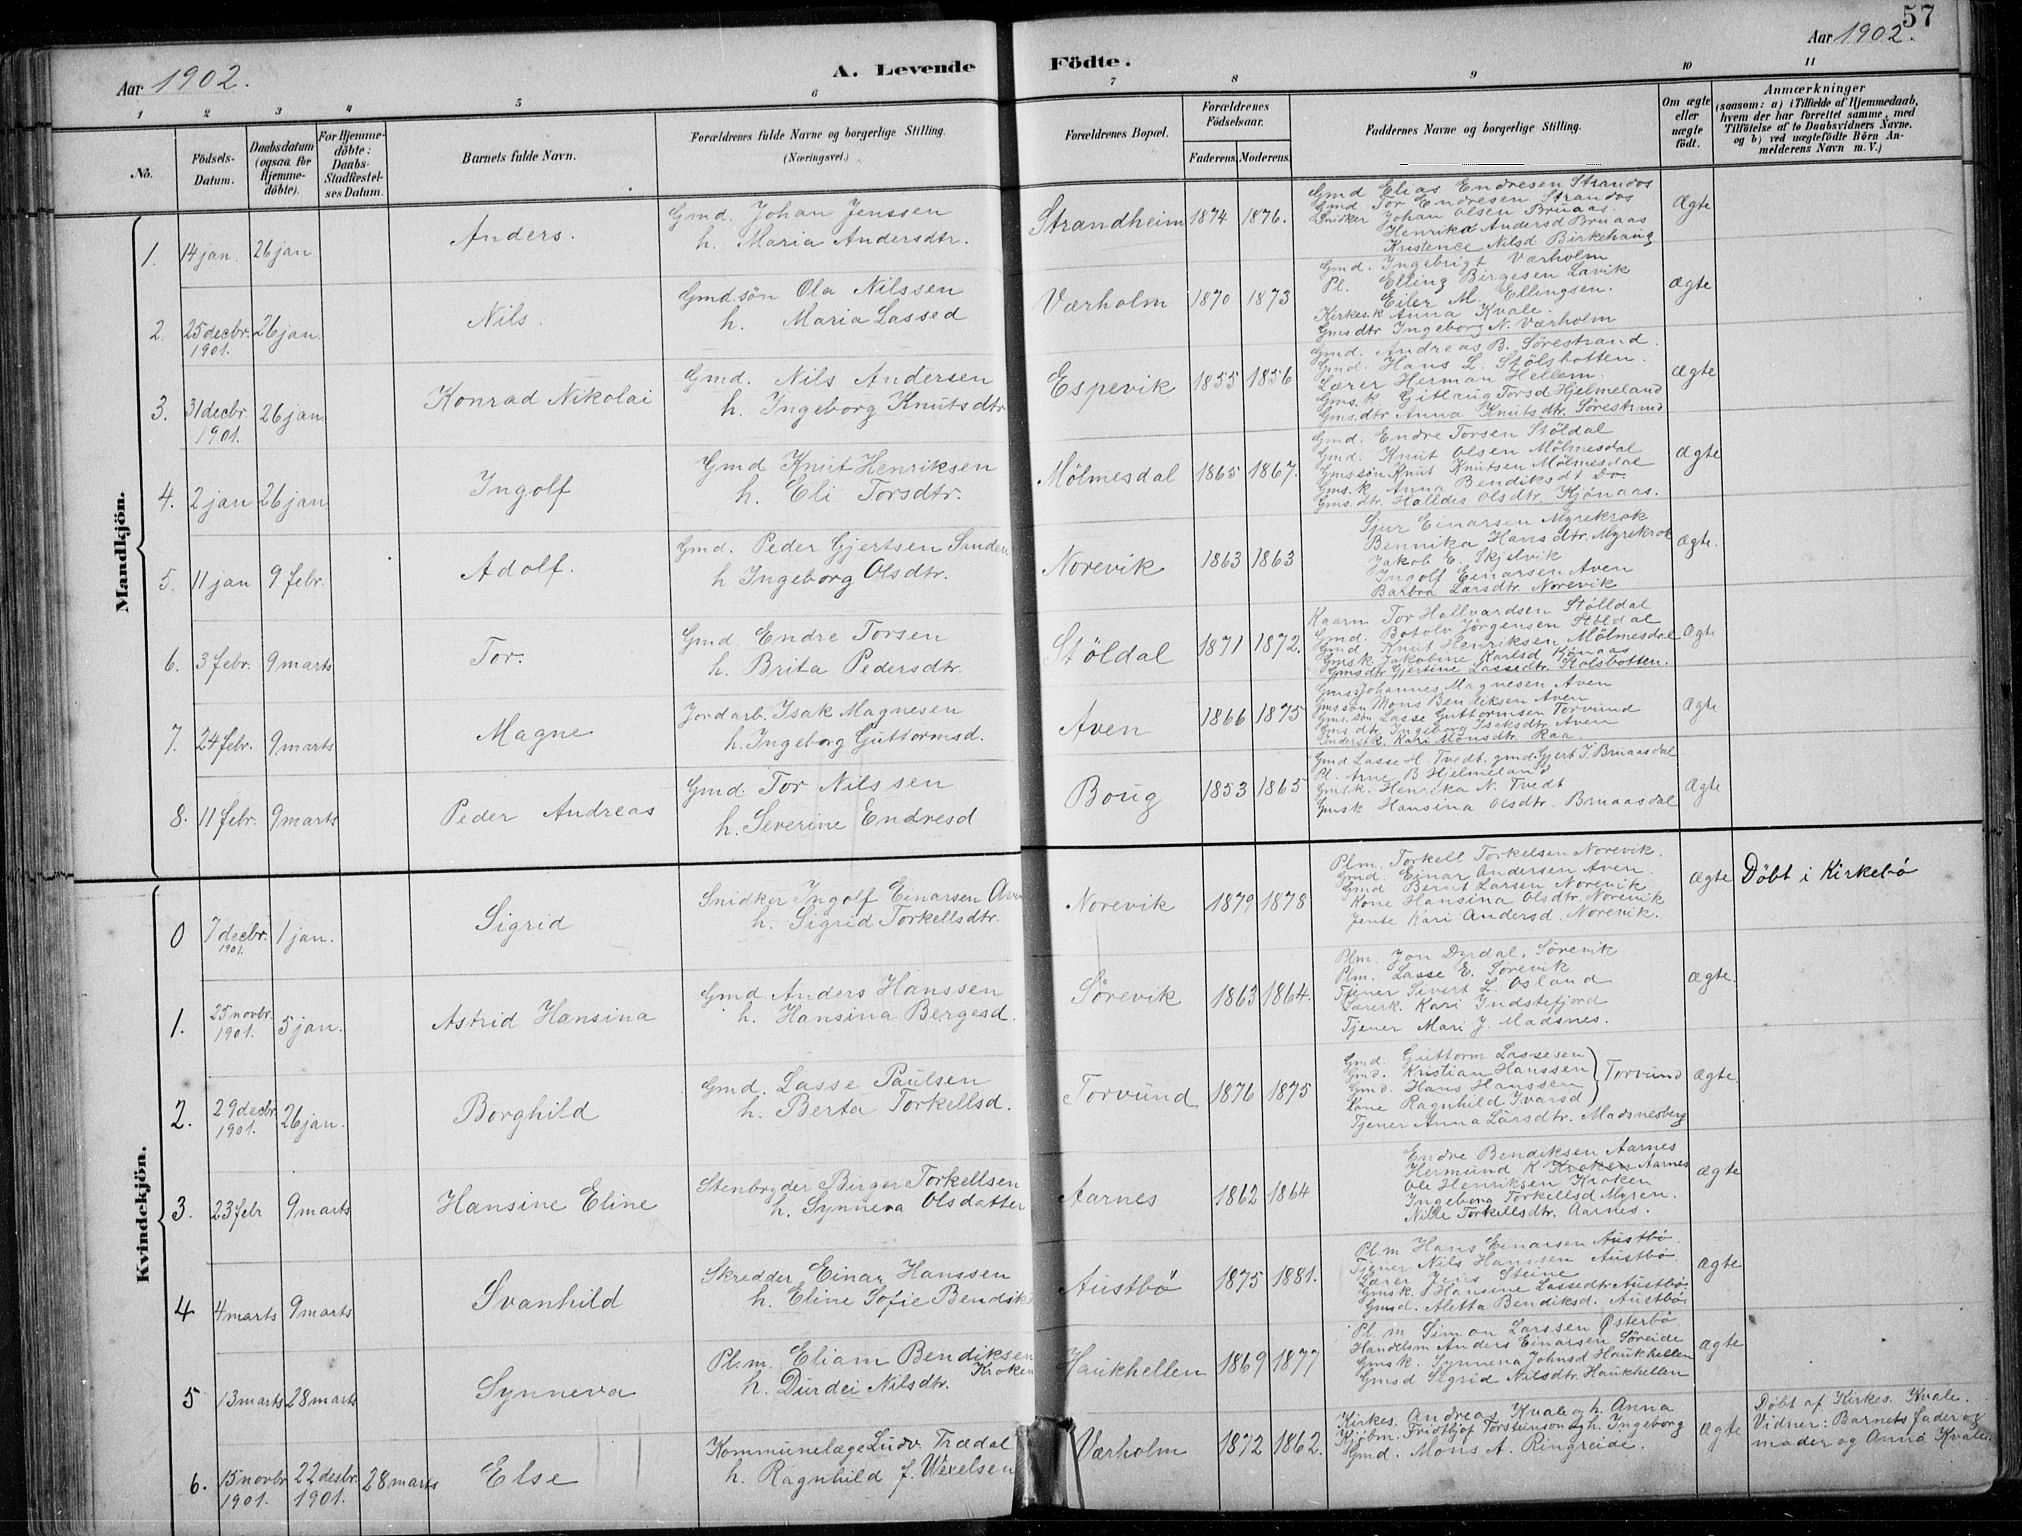 57
Aar 1902.
A. Levende
Födte.
Aar 1902.
1
2
3
4
5
6
7
8
9
10
11
No.
Födsels-
Datum.
Daabsdatum
(ogsaa for
Hjemme-
döbte).
For Hjemme-
döbte:
Daabs-
Stadfæstel-
ses Datum.
Barnets fulde Navn.
Forældrenes fulde Navne og borgerlige Stilling.
(Næringsvei.)
Forældrenes Bopæl.
Forældrenes
Födselsaar.
Faderens.
Moderens.
Faddernes Navne og borgerlige Stilling.
Om ægte
eller
uægte
födt.
Anmærkninger
(saasom: a) i Tilfælde af Hjemmedaab,
hvem der har forrettet samme, med
Tilföielse af to Daabsvidners Navne,
og b) ved uægtefödte Börn An-
melderens Navn m. V.)
Mandkjön.
1. 14 jan. 26 jan Anders.
Gmd. Johan Jenssen
h. Maria Andersdtr.
Strandheim 1874 1876.
Gmd Elias Endresen Strandos
Gmd Tor Endresen Strandos
Snidker Johan Olsen Bruaas.
Henrika Andersd Bruaas
Kristence Nilsd Birkehaug
Ægte
2. 25 decbr. 1901. 26 jan. Nils.
Gmdsön Ola Nilssen
h. Maria Lassed
Værholm 1870 1873
Gmd. Ingebrigt Værholm
Pl. Elling Birgesen Lavik
Eiler M. Ellingsen.
Kirkes.k Anna Kvale.
Gmsdtr Ingeborg N. Værholm
ægte
3. 31 decbr. 1901. 26 jan Konrad Nikolai
Gmd. Nils Andersen
h. Ingeborg Knutsdtr
Espevik 1855 1856
Gmd. Andreas B. Sørestrand.
Gmd. Hans L. Stölsbotten.
Lærer Herman Hellem.
Gms.k Gitlaug Torsd Hjelmeland
Gmsdtr Anna Knutsdtr. Sørestrand
ægte
4. 2 jan 26 jan Ingolf
Gmd Knut Henriksen
h. Eli Torsdtr.
Mölmesdal 1865 1867.
Gmd. Endre Torsen Stöldal
Gmd. Knut Olsen Mölmesdal
Gmssön Knut Knutsen Mölmesdal
Gms.k Anna Bendiksdt Do.
Gms.dtr. Halldis Olsdtr. Kjönaas.
Ægte
5. 11 jan 9 febr. Adolf.
Gmd. Peder Gjertsen Sanden
h Ingeborg Olsdtr.
Norevik 1863 1863
Sjur Einarsen Myrekrok
Bennika Hansdtr. Myrekrok
Jakob E. Skjelvik
Ingolf Einarsen Aven
Barbra Larsdtr. Norevik
ægte.
6. 3 febr. 9 marts Tor.
Gmd Endre Torsen
h. Brita Pedersdtr.
Stöldal 1871 1872.
Kaarm Tor Hallvardsen Stölldal
Gmd. Botolv Jörgensen Stöldal
Gmd Knut Henriksen Mölmesdal
Gms.k Jakobine Karlsd Kjønaas
Gmsdtr Gjertine Lassedtr. Stølsbotten.
Ægte
7. 24 febr. 9 marts Magne
Jordarb. Isak Magnesen
h. Ingeborg Guttormsd.
Aven 1866 1875
Gmss Johannes Magnesen Aven
Gmssön Mons Bendiksen Aven
Gms.søn Lasse Guttormsen Torvund
Gms dtr Ingeborg Isaksdtr. Aven
Kari Monsdtr. Raa.
Ægte
8. 11 febr. 9 marts Peder Andreas
Gmd. Tor Nilssen
h. Severine Endresd
Boug 1853 1865
Gmd Lasse H. Tvedt. gmd. Gjert I. Bruaasdal
Pl. Arne B Hjelmeland
Gms.k. Henrika N. Tvedt
Gms.k Hansina Olsdtr. Bruaasdal
Ægte
Kvindekjön.
0 7 decbr. 1901. 1 jan. Sigrid
Snidker Ingolf Einarsen Aven
h. Sigrid Torkellsdtr.
Norevik 1879 1878
Plm. Torkell Torkelsen Norevik.
Gmd. Einar Andersen Aven.
Gmd Bernt Larsen Norevik
Kone Hansina Olsdtr. Norevik
Jente Kari Andersd. Norevik.
ægte Döbt i Kirkebö
1. 25 novbr. 1901. 5 jan. Astrid Hansina
Gmd. Anders Hanssen
h. Hansina Bergesd.
Sörevik 1863 1864.
Plm. Jon Dyrdal, Sörevik
Plm. Lasse E. Sørevik
Tjener Sivert L. Osland
Lærerk. Kari Indstefjord
Tjener Mari J. Madsnes.
ægte.
2. 29 decbr 1901. 26 jan. Borghild
Gmd. Lasse Paulsen
h. Berta Torkellsd.
Torvund 1876 1875
Gmd. Guttorm Lassesen
Gmd. Kristian Hanssen
Gmd. Hans Hanssen
Kone Ragnhild Ivarsd
Torvund
Tjener Anna Larsdtr. Madsnesberg
ægte.
3. 23 febr 9 marts Hansine Eline
Stenbryder Birger Torkellsen
h. Synneva Olsdatter
Aarnes 1862 1864
Endre Bendiksen Aarnes
Hermund K Kroken Aarnes
Ole Henriksen Kroken
Ingeborg Torkellsd Myren.
Nille Torkellsdtr. Aarnes.
ægte
4 4 marts 9 marts Svanhild
Skredder Einar Hanssen
h. Eline Sofie Bendiks
Austbö 1875 1881.
Pl.m Hans Einarsen Austbö.
Tjener Nils Hanssen Austbö
Lærer Jens Steine
Gmsk. Hansine Lassedtr Austbö
Gmsd. Aletta Bendiksd. Austbö
ægte
5 13 marts 28 marts Synneva
Pl.m. Eliam Bendiksen
Kroken
h. Durdei Nilsdtr.
Haukhellen 1869 1877
Pl.m Simon Larssen Østerbö
Handlsm Anders Einarsen Søreide
Gmsk. Synneva Johnsd Haukhellen
Gmsd Sigrid Nilsdtr. Haukhellen
ægte
6. 15 novbr 1901. 22 desbr. 1901. 28 marts Else
Kommunelæge Ludv. Trædal
h. Ragnhild f. Wexelsen
Værholm 1872 1862.
Kirkes. Andreas Kvale og h. Anna
Kjöbm. Fridthjof Torsteinson og h. Ingeborg
Gmd. Mons A. Ringreide.
ægte
Döbt af Kirkes. Kvale.
Vidner: Barnets fader og
moder og Anna Kvale.